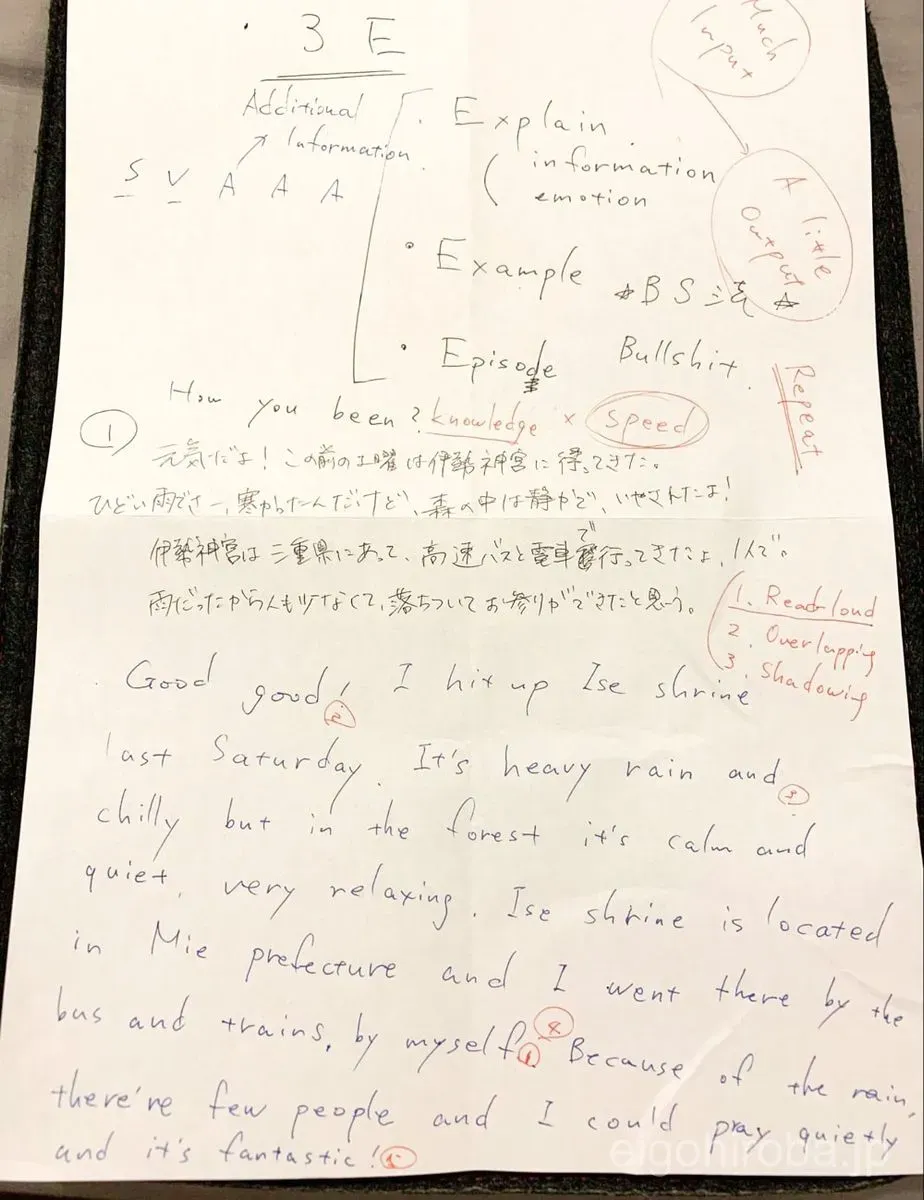 Much
Input
・3E
Additional
Information
S V A A A
・Explain
(information
emotion
A little
output
・Example
☆BS流☆
・Episode
Bullshit.
Repeat
How you been? knowledge × speed
① 元気だよ!この前の土曜は伊勢神宮に行ってきた。
ひどい雨でさー、寒かったんだけど、森の中は静かで、いやされたよ!
伊勢神宮は三重県にあって、高速バスと電車で行ってきたよ、1人で。
雨だったから人も少なくて、落ちついてお参りができたと思う。
1. Read-loud
2. Overlapping
3. Shadowing
Good good! I hit up Ise shrine
②
last Saturday. It's heavy rain and
③
chilly but in the forest it's calm and
quiet, very relaxing. Ise shrine is located
in Mie prefecture and I went there by the
bus and trains, by myself. ① ④ Because of the rain,
there're few people and I could pray quietly
and it's fantastic! ⑤
eigohiroba.jp